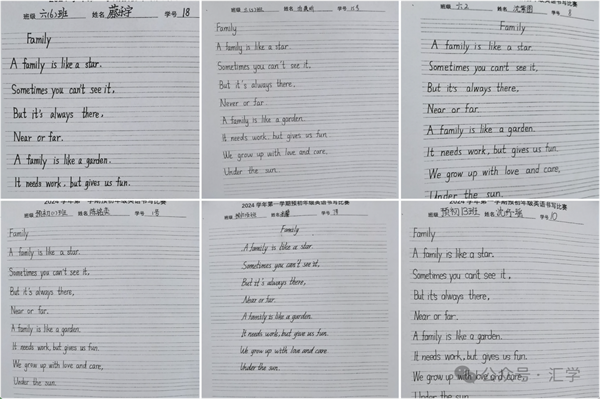 班级 六(6)班 姓名 学号 18
Family
A family is like a star.
Sometimes you can't see it,
But it's always there,
Near or far.
A family is like a garden.
It needs work, but gives us fun.
班级 姓名 学号
Family
A family is like a star.
Sometimes you can't see it,
But it's always there,
Never or far.
A family is like a garden.
It needs work, but gives us fun.
We grow up with love and care,
Under the sun.
班级 六2 姓名 学号 8
Family
A family is like a star.
Sometimes you can't see it,
But it's always there,
Near or far.
A family is like a garden.
It needs work, but gives us fun.
We grow up with love and care,
Under the sun.
2024 学年第一学期预初年级英语书写比赛
班级 姓名 学号
Family
A family is like a star.
Sometimes you can't see it,
But it's always there,
Near or far.
A family is like a garden.
It needs work, but gives us fun.
We grow up with love and care,
Under the sun.
2024 学年第一学期预初年级英语书写比赛
班级 姓名 学号
Family
A family is like a star.
Sometimes you can't see it,
But it's always there,
Near or far.
A family is like a garden.
It needs work, but gives us fun.
We grow up with love and care.
Under the sun.
2024 学年第一学期预初年级英语书写比赛
班级 预初13班 姓名 学号 10
Family
A family is like a star.
Sometimes you can't see it,
But it's always there,
Near or far.
A family is like a garden.
It needs work, but gives us fun.
We grow up with love and care,
Under the sun.
公众号·汇学